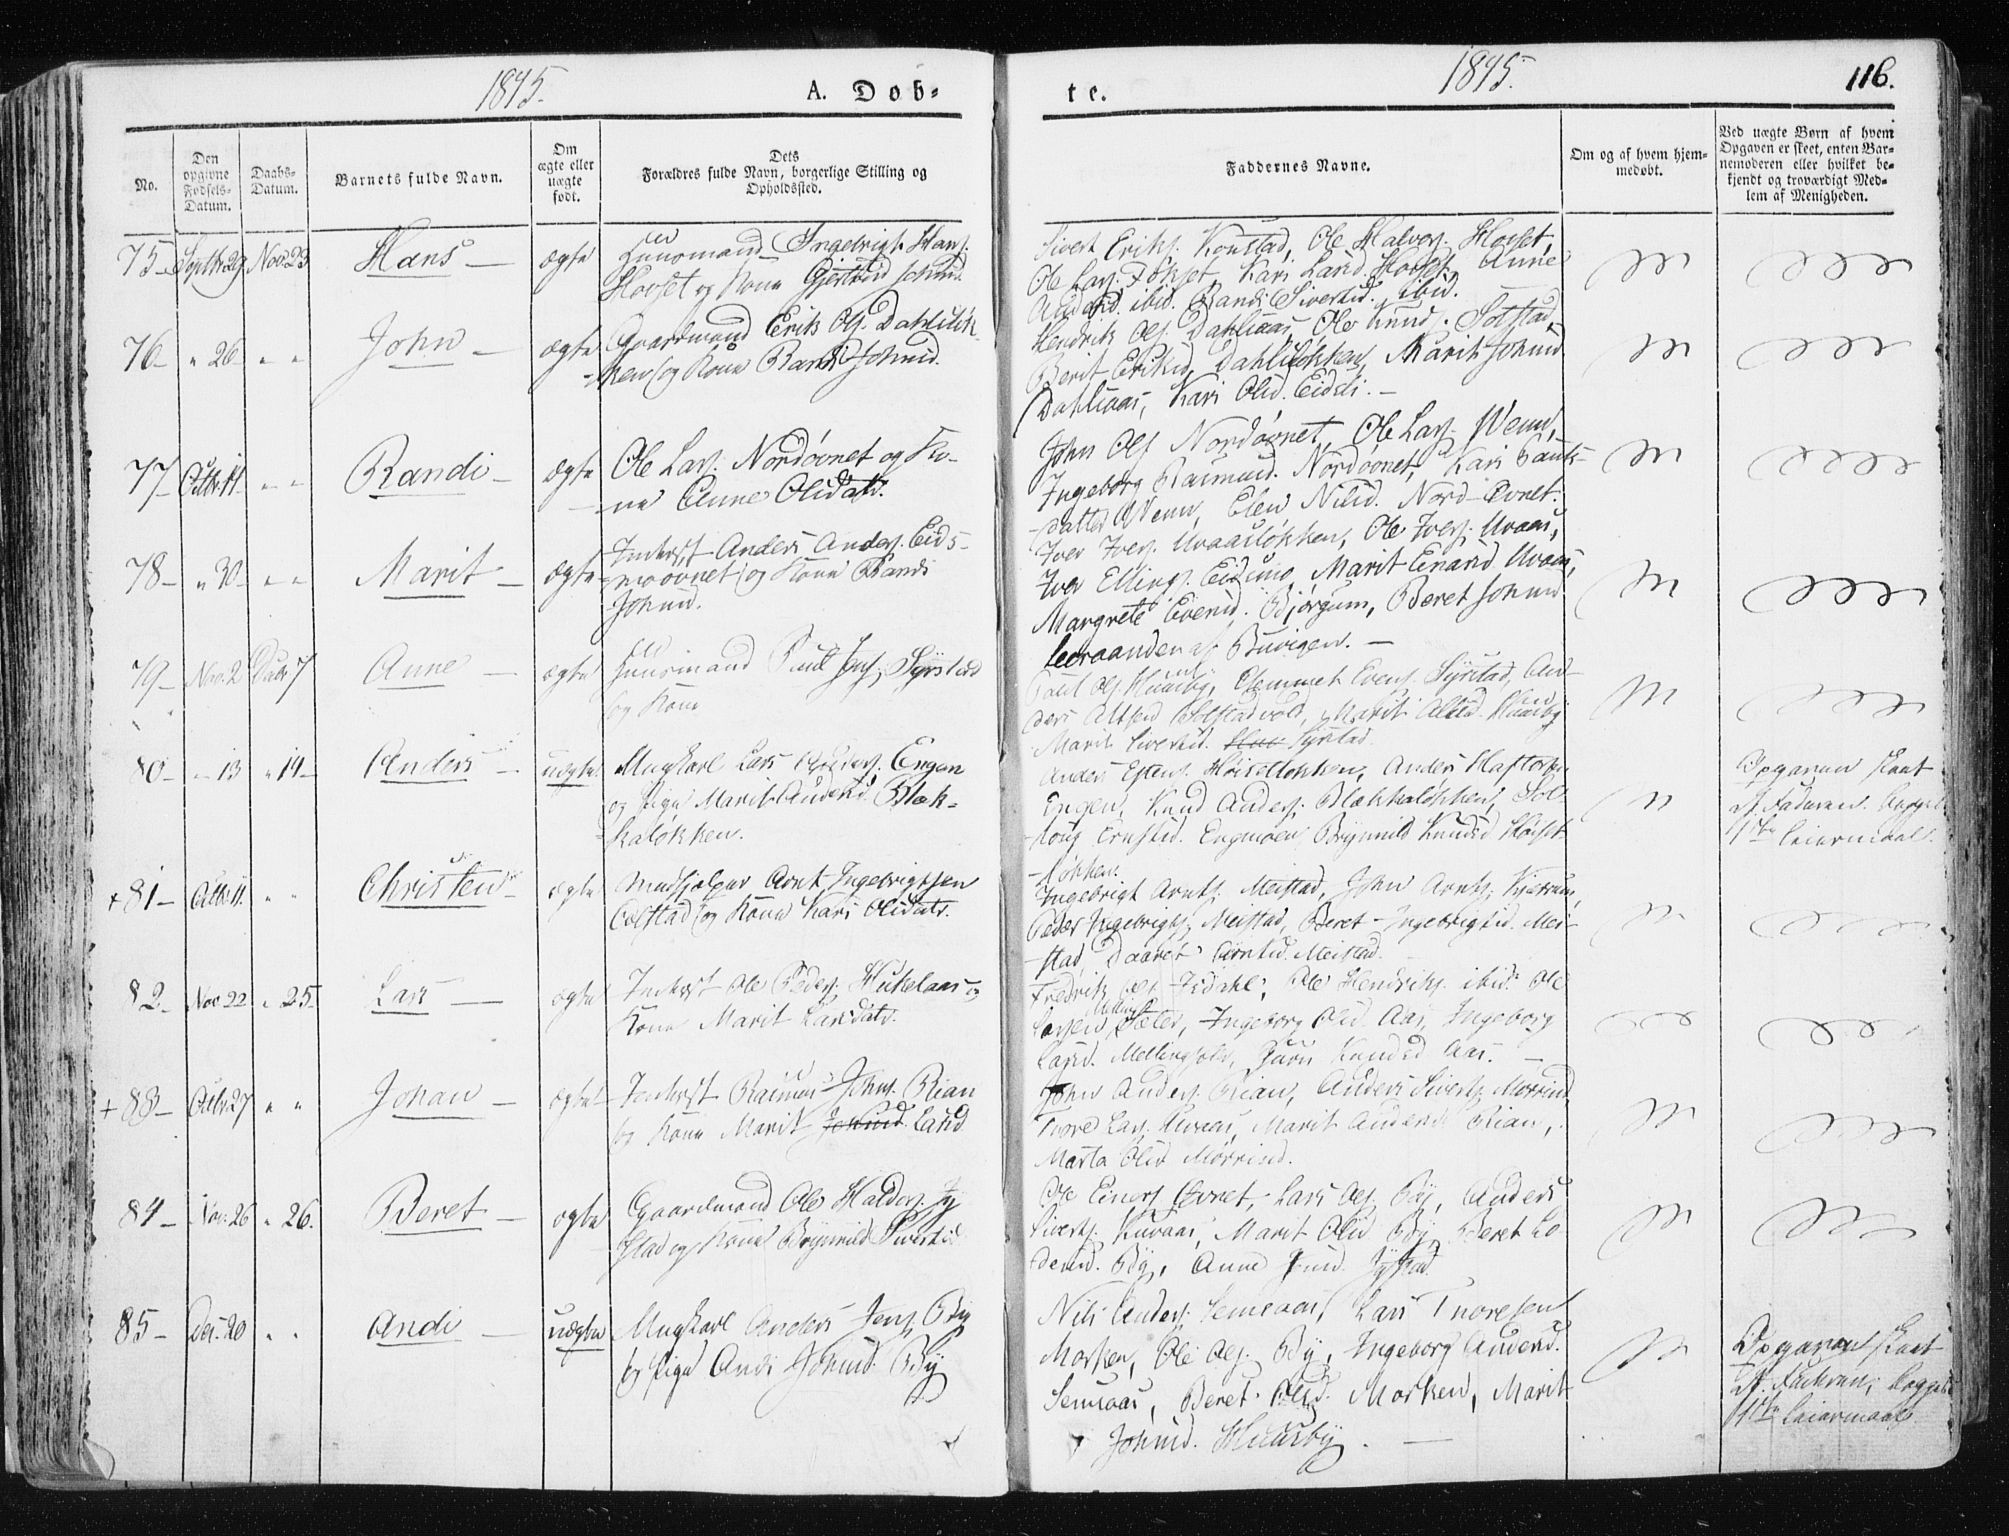 1845.
A. Døb-
te.
1845.
116.
No.
Den
opgivne
Fødsels-
Datum.
Daabs-
Datum.
Barnets fulde Navn.
Om
ægte eller
uægte
født.
Dets
Forældres fulde Navn, borgerlige Stilling og
Opholdssted.
Faddernes Navne.
Om og af hvem hjem-
medøbt.
Ved uægte Børn af hvem
Opgaven er skeet, enten Bar-
nemoderen eller hvilket be-
kjendt og troværdigt Med-
lem af Menigheden.
75 Septbr 29 Nov. 23 Hans ægte Huusmand Ingebrigt Hans.
Hovset og Kone Gjertrud Johnsd.
Sivert Eriks. Konstad, Ole Halvors. Hovset,
Ole Lars. Kari Larsd. Hovset, Anne
ibid. Randi Sivertsd. ibid.
76 " 26 " " John ægte Gaardmand Erik Ols. Dahlløk-
ken og Kone Randi Johnsd.
Hendrik Ols. Dahlaas, Ole Knuds. Solstad,
Berit Eriksd. Dahlløkken, Marit Johnsd.
Dahlaas, Kari Olsd. Eidsli.
77 Octbr. 11. " " Randi ægte Ole Lars. Nordøvnet og Ko-
ne Anne Olsdatr.
John Ols. Nordøvnet, Ole Lars. Wenn,
Ingeborg Rasmusd. Nordøvnet, Kari Pauls-
datter Wenn, Elen Nilsd. Nord-Øvnet.
78 " 30 " " Marit ægte Inderst Anders Anders. Eids-
moøvnet og Kone Randi
Johnsd.
Iver Ivers. Uvaasløkken, Ole Ivers. Uvaas,
Iver Ellings. Eidsmo, Marit Enarsd. Uvaas,
Margrete Evensd. Bjørgum, Beret Johnsd.
Leeraanden af Buvigen.
79 Nov. 2 Decbr 7 Anne ægte Huusmand Paul Jons. Syrstad
og Kone
Paul Ols. Huusby, Clemmet Evens. Syrstad, An-
ders Solstadvold, Marit Olsd. Huusby
Marit Sivertsd. Syrstad.
80 " 13 " 14 Anders uægte Ungkarl Lars Anders. Engen
og Pige Marit Andersd. Blæk-
kaløkken.
Anders Estens. Høisetløkken, Anders Haftorsen
Engen, Knud Anders. Blækkaløkken, Sol-
loug Ernstsd. Engmoen, Brynnild Knudsd. Høiset-
løkken.
Opgaven skeet
af Faderen. Begges
1ste Leiermaal.
+ 81 Octbr 11. " " Christen ægte Medhjælper Arnt Ingebrigtsen
Colstad og Kone Kari Olsdatr.
Ingebrigt Arnts. Meistad, John Arnts. Kjerem,
Peder Ingebrigts. Meistad, Beret Ingebrigtsd. Mei-
stad, Daaret Arntsd. Meistad.
82 Nov 22 " 25. Lars ægte Inderst Ole Peders. Hukelaas og
Kone Marit Larsdatr.
Fredrik Ols. Isdahl, Ole Hendriks. ibid. Ole
Larsen Sæter, Ingeborg Olsd. Aas, Ingeborg
Larsd. Mellingsæter, Guru Knudsd. Aas.
+ 83 Octbr. 27 " " Johan ægte Inderst Rasmus Johns. Rian
og Kone Marit Johnsd. Larsd.
John Anders. Rian, Anders Siverts. Mørrind,
Tore Lars. Uvaas, Marit Andersd. Rian,
Marta Olsd. Mørrind.
84 Nov. 26 " 26. Beret ægte Gaardmand Ole Haldors. Jy-
stad og Kone Brynnild Sivertsd.
Ole Einers. Øvnet, Lars Ols. By, Anders
Siverts. Kuvaas, Marit Olsd. By, Beret Lo-
densd. By, Anne Jonsd. Jystad.
85 Oct. 20 " " Andi uægte Ungkarl Anders Jens. By
og Pige Andi Johnsd. By
Nils Anders. Semsaas, Lars Thoresen
Morken, Ole Ols. By, Ingeborg Andersd.
Semsaas, Beret Olsd. Morken, Marit
Johnsd. Huusby.
Opgaven skeet
af Faderen, begges
1ste Leiermaal